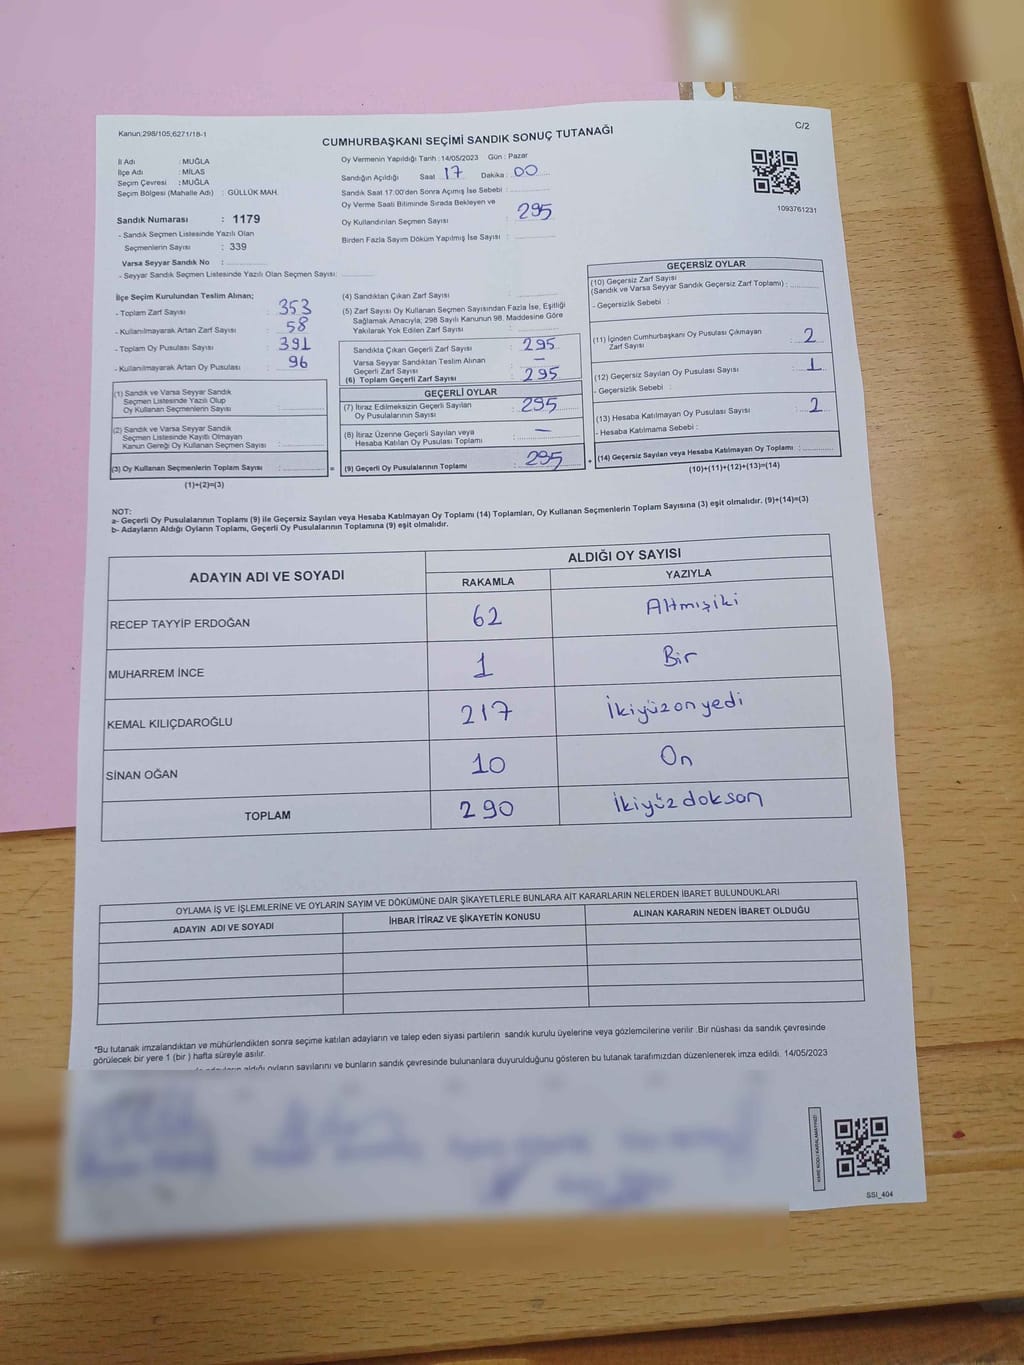 Kanun;298/105,6271/18-1
C/2
CUMHURBAŞKANI SEÇİMİ SANDIK SONUÇ TUTANAĞI
İl Adı : MUĞLA
İlçe Adı : MİLAS
Seçim Çevresi : MUĞLA
Seçim Bölgesi (Mahalle Adı) : GÜLLÜK MAH.
Sandık Numarası : 1179
- Sandık Seçmen Listesinde Yazılı Olan
Seçmenlerin Sayısı : 339
Varsa Seyyar Sandık No :
- Seyyar Sandık Seçmen Listesinde Yazılı Olan Seçmen Sayısı:
Oy Vermenin Yapıldığı Tarih : 14/05/2023 Gün : Pazar
Sandığın Açıldığı Saat 17 Dakika : 00
Sandık Saat 17:00'den Sonra Açımış İse Sebebi :
Oy Verme Saati Bitiminde Sırada Bekleyen ve
Oy Kullandırılan Seçmen Sayısı : 295
Birden Fazla Sayım Döküm Yapılmış İse Sayısı :
1093761231
İlçe Seçim Kurulundan Teslim Alınan;
- Toplam Zarf Sayısı : 353
- Kullanılmayarak Artan Zarf Sayısı : 58
- Toplam Oy Pusulası Sayısı : 391
- Kullanılmayarak Artan Oy Pusulası : 96
(1) Sandık ve Varsa Seyyar Sandık
Seçmen Listesinde Yazılı Olup
Oy Kullanan Seçmenlerin Sayısı :
(2) Sandık ve Varsa Seyyar Sandık
Seçmen Listesinde Kayıtlı Olmayan
Kanun Gereği Oy Kullanan Seçmen Sayısı :
(3) Oy Kullanan Seçmenlerin Toplam Sayısı : =
(1)+(2)=(3)
(4) Sandıktan Çıkan Zarf Sayısı :
(5) Zarf Sayısı Oy Kullanan Seçmen Sayısından Fazla İse, Eşitliği
Sağlamak Amacıyla, 298 Sayılı Kanunun 98. Maddesine Göre
Yakılarak Yok Edilen Zarf Sayısı :
Sandıkta Çıkan Geçerli Zarf Sayısı : 295
Varsa Seyyar Sandıktan Teslim Alınan
Geçerli Zarf Sayısı : —
(6) Toplam Geçerli Zarf Sayısı : 295
GEÇERLİ OYLAR
(7) İtiraz Edilmeksizin Geçerli Sayılan
Oy Pusulalarının Sayısı : 295
(8) İtiraz Üzerine Geçerli Sayılan veya
Hesaba Katılan Oy Pusulası Toplamı : —
(9) Geçerli Oy Pusulalarının Toplamı : 295 +
GEÇERSİZ OYLAR
(10) Geçersiz Zarf Sayısı
(Sandık ve Varsa Seyyar Sandık Geçersiz Zarf Toplamı) :
- Geçersizlik Sebebi :
(11) İçinden Cumhurbaşkanı Oy Pusulası Çıkmayan
Zarf Sayısı : 2
(12) Geçersiz Sayılan Oy Pusulası Sayısı : 1
- Geçersizlik Sebebi :
(13) Hesaba Katılmayan Oy Pusulası Sayısı : 2
- Hesaba Katılmama Sebebi :
(14) Geçersiz Sayılan veya Hesaba Katılmayan Oy Toplamı :
(10)+(11)+(12)+(13)=(14)
NOT:
a- Geçerli Oy Pusulalarının Toplamı (9) ile Geçersiz Sayılan veya Hesaba Katılmayan Oy Toplamı (14) Toplamları, Oy Kullanan Seçmenlerin Toplam Sayısına (3) eşit olmalıdır. (9)+(14)=(3)
b- Adayların Aldığı Oyların Toplamı, Geçerli Oy Pusulalarının Toplamına (9) eşit olmalıdır.
ADAYIN ADI VE SOYADI
ALDIĞI OY SAYISI
RAKAMLA YAZIYLA
RECEP TAYYİP ERDOĞAN 62 Altmışiki
MUHARREM İNCE 1 Bir
KEMAL KILIÇDAROĞLU 217 İkiyüzonyedi
SİNAN OĞAN 10 On
TOPLAM 290 İkiyüz dokson
OYLAMA İŞ VE İŞLEMLERİNE VE OYLARIN SAYIM VE DÖKÜMÜNE DAİR ŞİKAYETLERLE BUNLARA AİT KARARLARIN NELERDEN İBARET BULUNDUKLARI
ADAYIN ADI VE SOYADI İHBAR İTİRAZ VE ŞİKAYETİN KONUSU ALINAN KARARIN NEDEN İBARET OLDUĞU
*Bu tutanak imzalandıktan ve mühürlendikten sonra seçime katılan adayların ve talep eden siyasi partilerin sandık kurulu üyelerine veya gözlemcilerine verilir .Bir nüshası da sandık çevresinde
görülecek bir yere 1 (bir ) hafta süreyle asılır.
aldığı oyların sayılarını ve bunların sandık çevresinde bulunanlara duyurulduğunu gösteren bu tutanak tarafımızdan düzenlenerek imza edildi. 14/05/2023
SSI_404